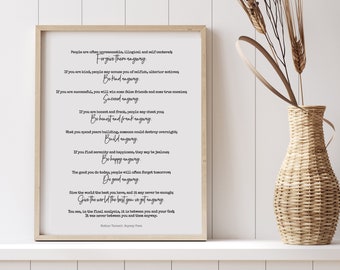 People are often unreasonable, illogical and self-centered;
Forgive them anyway.
If you are kind, people may accuse you of selfish, ulterior motives;
Be kind anyway.
If you are successful, you will win some false friends and some true enemies;
Succeed anyway.
If you are honest and frank, people may cheat you;
Be honest and frank anyway.
What you spend years building, someone could destroy overnight;
Build anyway.
If you find serenity and happiness, they may be jealous;
Be happy anyway.
The good you do today, people will often forget tomorrow;
Do good anyway.
Give the world the best you have, and it may never be enough;
Give the world the best you've got anyway.
You see, in the final analysis, it is between you and your God;
It was never between you and them anyway.
Mother Teresa's Anyway Poem